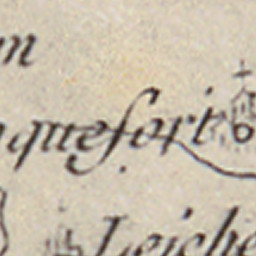 m
quefort
Leiche